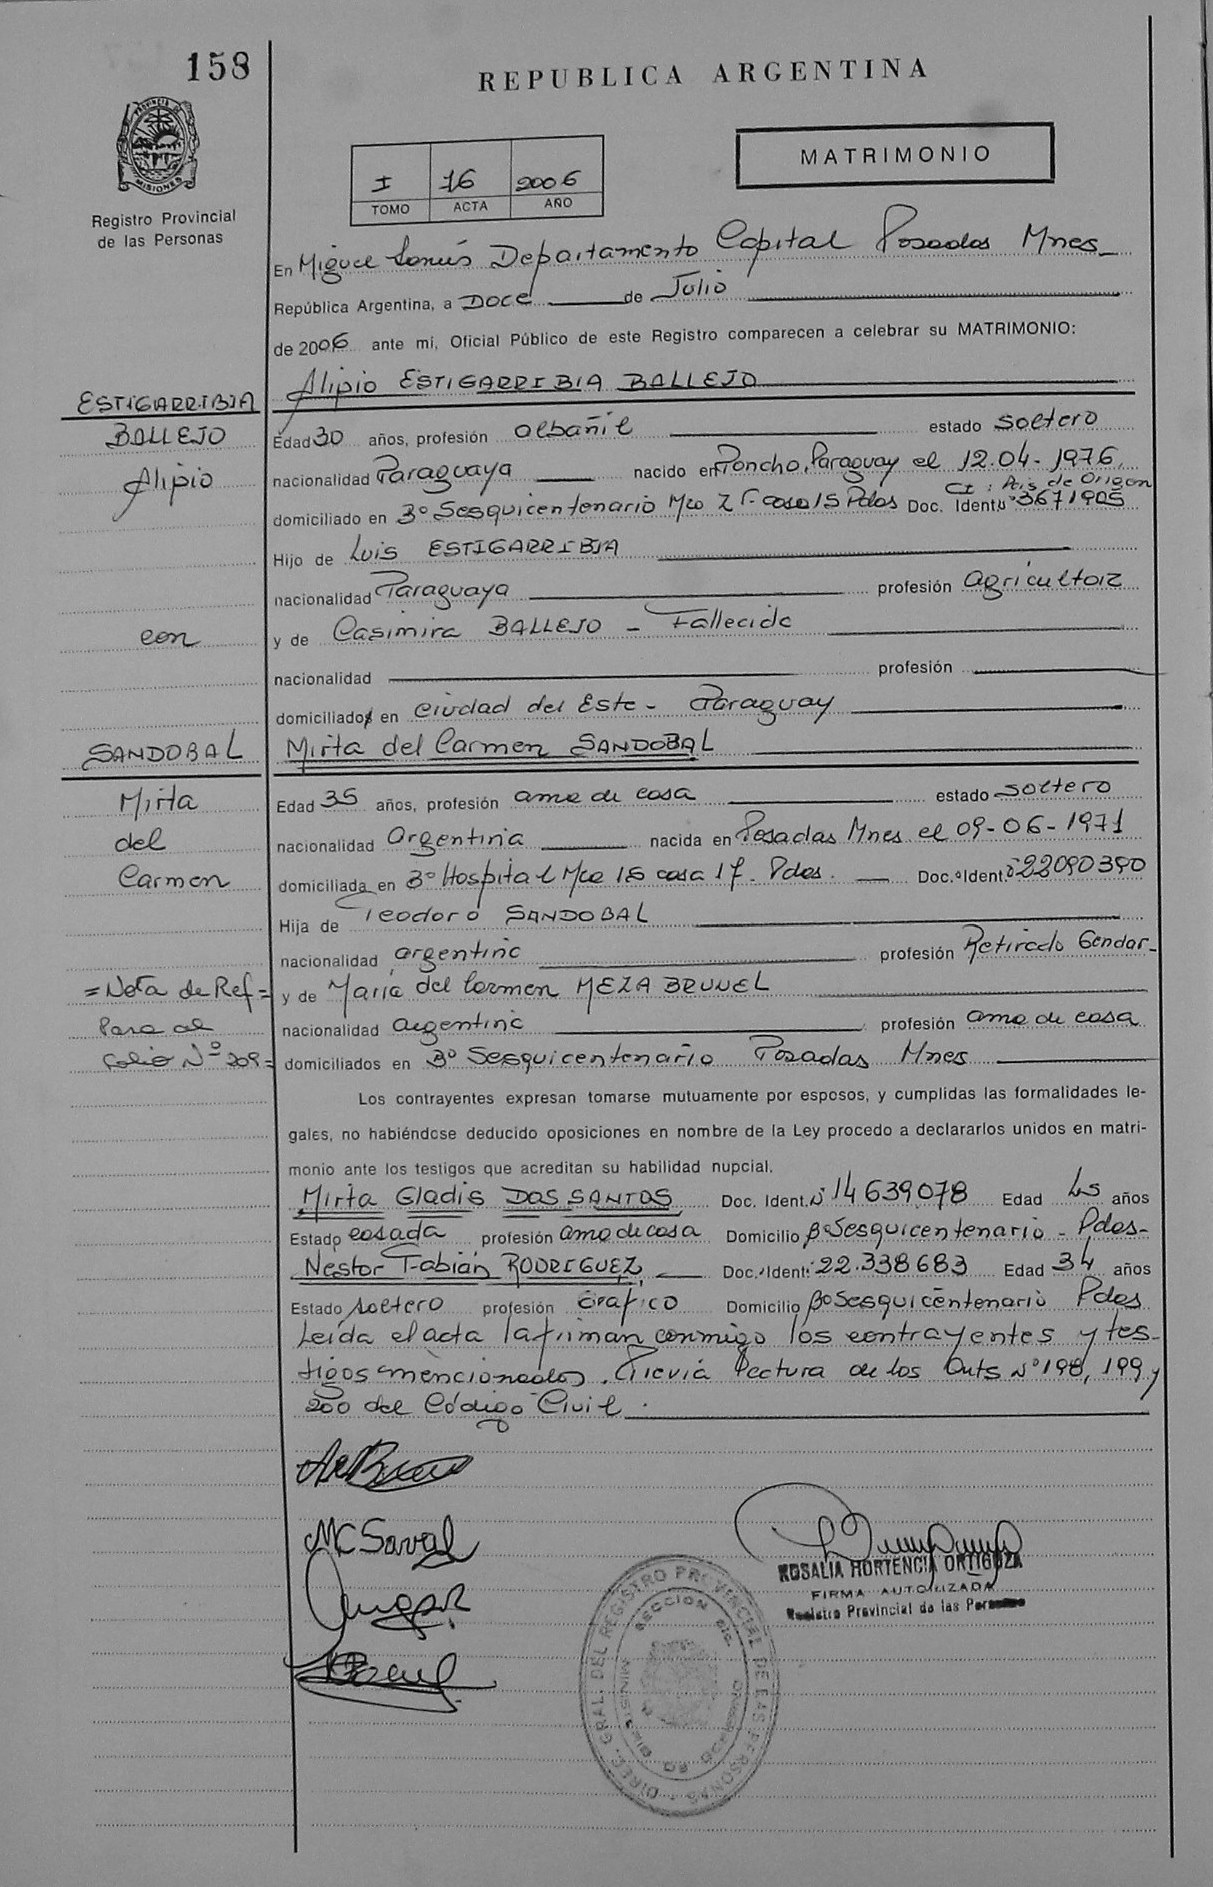 158
REPUBLICA ARGENTINA
PROVINCIA DE
MISIONES
Registro Provincial
de las Personas
I 16 2006
TOMO ACTA AÑO
MATRIMONIO
En Miguel Lanús Departamento Capital Posadas Mnes
República Argentina, a Doce de Julio
de 2006 ante mí, Oficial Público de este Registro comparecen a celebrar su MATRIMONIO:
Alipio ESTIGARRIBIA BALLEJO
ESTIGARRIBIA
BALLEJO
Alipio
Edad 30 años, profesión albañil estado soltero
nacionalidad Paraguaya nacido en Poncho, Paraguay el 12.04-1976
CI: País de Origen
domiciliado en Bº Sesquicentenario casa 15 Pdas Doc. Ident. Nº 3671905
Hijo de Luis ESTIGARRIBIA
nacionalidad Paraguaya profesión agricultor
con
y de Casimira BALLEJO - Fallecida
nacionalidad profesión
domiciliado en Ciudad del Este - Paraguay
SANDOBAL
Mirta del Carmen SANDOBAL
Mirta
del
Carmen
Edad 35 años, profesión ama de casa estado soltero
nacionalidad argentina nacida en Posadas Mnes el 09-06-1971
domiciliada en Bº Hospital casa 17 Pdas. Doc. Ident. 22090390
Hija de Teodoro SANDOBAL
nacionalidad argentina profesión Retirado Gendar-
= Nota de Ref =
Para al
folio Nº 209=
y de María del Carmen MEZA BRUNEL
nacionalidad argentina profesión ama de casa
domiciliados en Bº Sesquicentenario Posadas Mnes
Los contrayentes expresan tomarse mutuamente por esposos, y cumplidas las formalidades le-
gales, no habiéndose deducido oposiciones en nombre de la Ley procedo a declararlos unidos en matri-
monio ante los testigos que acreditan su habilidad nupcial.
Mirta Gladis DOS SANTOS Doc. Ident. Nº 14639078 Edad 45 años
Estado casada profesión ama de casa Domicilio Bº Sesquicentenario - Pdas-
Nestor Fabián RODRIGUEZ Doc. Ident. 22.338683 Edad 34 años
Estado soltero profesión Gráfico Domicilio Bº Sesquicentenario Pdas
Leída el acta la firman conmigo los contrayentes y tes-
tigos mencionados. Previa lectura de los Arts Nº 198, 199 y
200 del Código Civil.
MC Saval
ROSALIA HORTENCIA ORTIGOZA
FIRMA AUTORIZADA
Registro Provincial de las Personas
DIREC. GRAL. DEL REGISTRO PROVINCIAL DE LAS PERSONAS